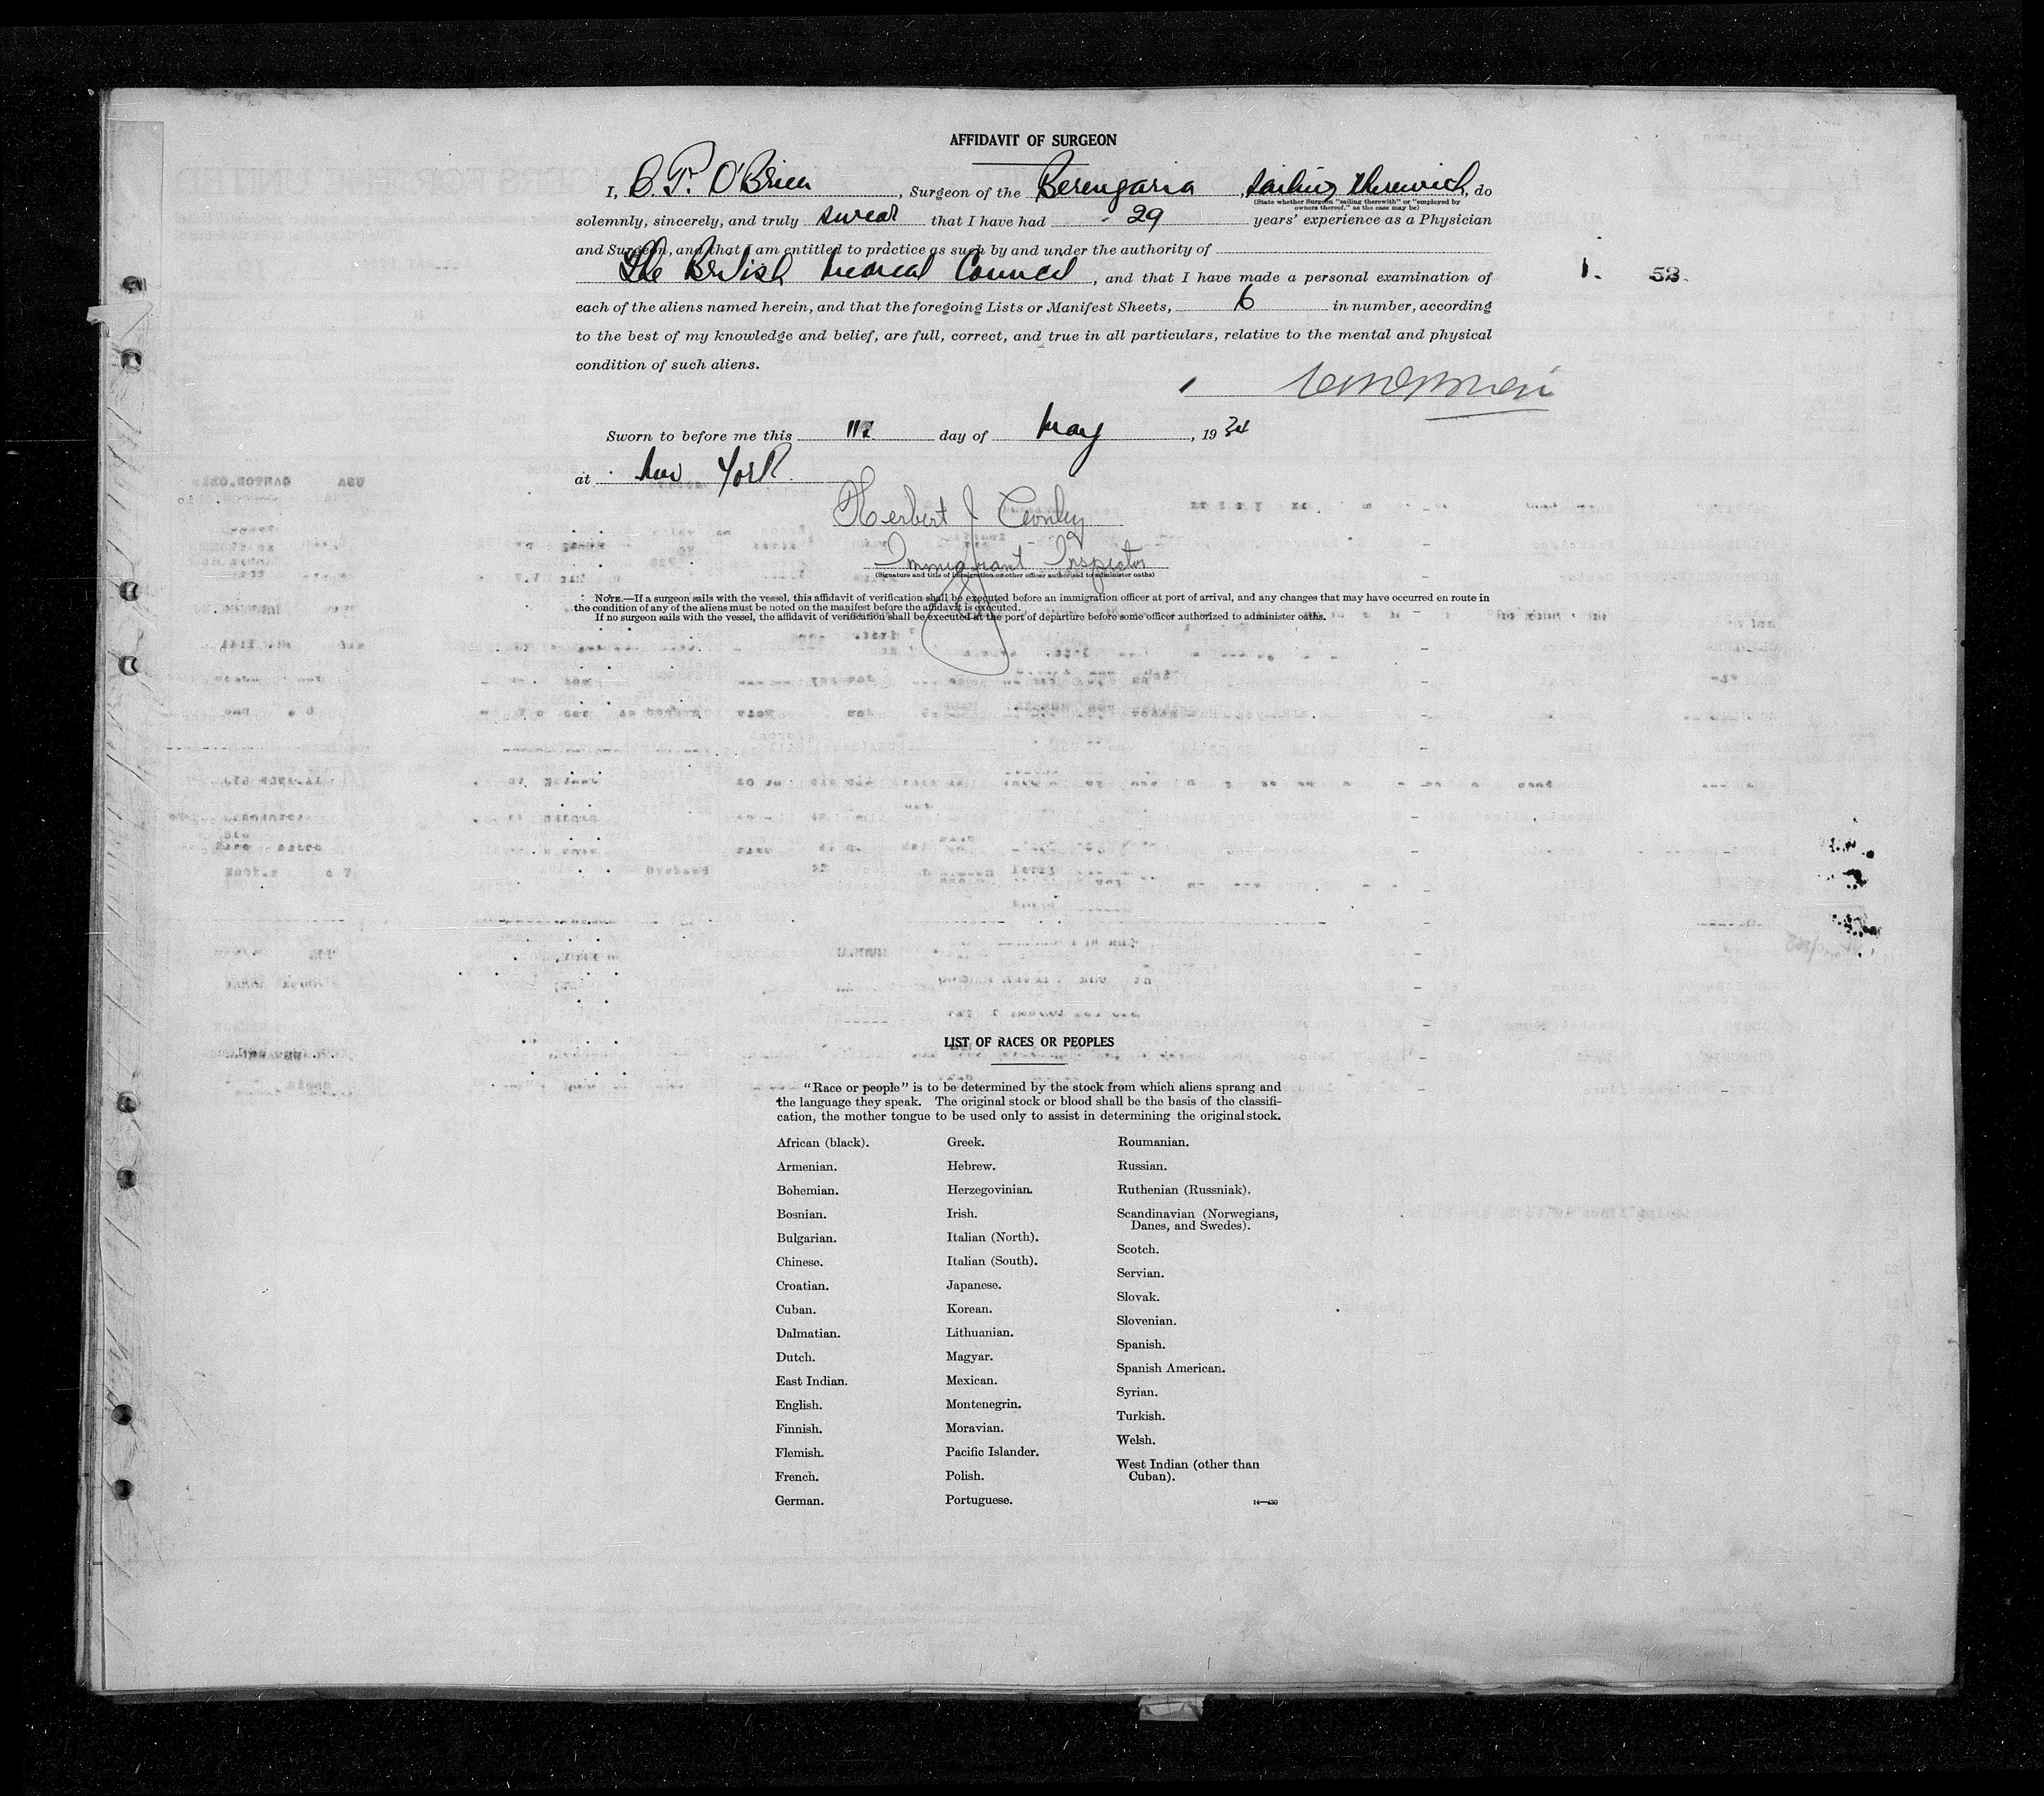 AFFIDAVIT OF SURGEON
I, O'Brien, Surgeon of the Berengaria, sailing therewith, do
(State whether Surgeon "sailing therewith" or "employed by
owners thereof," as the case may be)
solemnly, sincerely, and truly swear that I have had - 29 years' experience as a Physician
and Surgeon, and that I am entitled to practice as such by and under the authority of
The British Medical Council, and that I have made a personal examination of
1. 52
each of the aliens named herein, and that the foregoing Lists or Manifest Sheets, 6 in number, according
to the best of my knowledge and belief, are full, correct, and true in all particulars, relative to the mental and physical
condition of such aliens.
Sworn to before me this 11 day of May, 1934
at New York
Herbert J
Immigrant Inspector
(Signature and title of immigration or other officer authorized to administer oaths)
NOTE.—If a surgeon sails with the vessel, this affidavit of verification shall be executed before an immigration officer at port of arrival, and any changes that may have occurred en route in
the condition of any of the aliens must be noted on the manifest before the affidavit is executed.
If no surgeon sails with the vessel, the affidavit of verification shall be executed at the port of departure before some officer authorized to administer oaths.
LIST OF RACES OR PEOPLES
"Race or people" is to be determined by the stock from which aliens sprang and
the language they speak. The original stock or blood shall be the basis of the classifi-
cation, the mother tongue to be used only to assist in determining the original stock.
African (black).
Armenian.
Bohemian.
Bosnian.
Bulgarian.
Chinese.
Croatian.
Cuban.
Dalmatian.
Dutch.
East Indian.
English.
Finnish.
Flemish.
French.
German.
Greek.
Hebrew.
Herzegovinian.
Irish.
Italian (North).
Italian (South).
Japanese.
Korean.
Lithuanian.
Magyar.
Mexican.
Montenegrin.
Moravian.
Pacific Islander.
Polish.
Portuguese.
Roumanian.
Russian.
Ruthenian (Russniak).
Scandinavian (Norwegians,
Danes, and Swedes).
Scotch.
Servian.
Slovak.
Slovenian.
Spanish.
Spanish American.
Syrian.
Turkish.
Welsh.
West Indian (other than
Cuban).